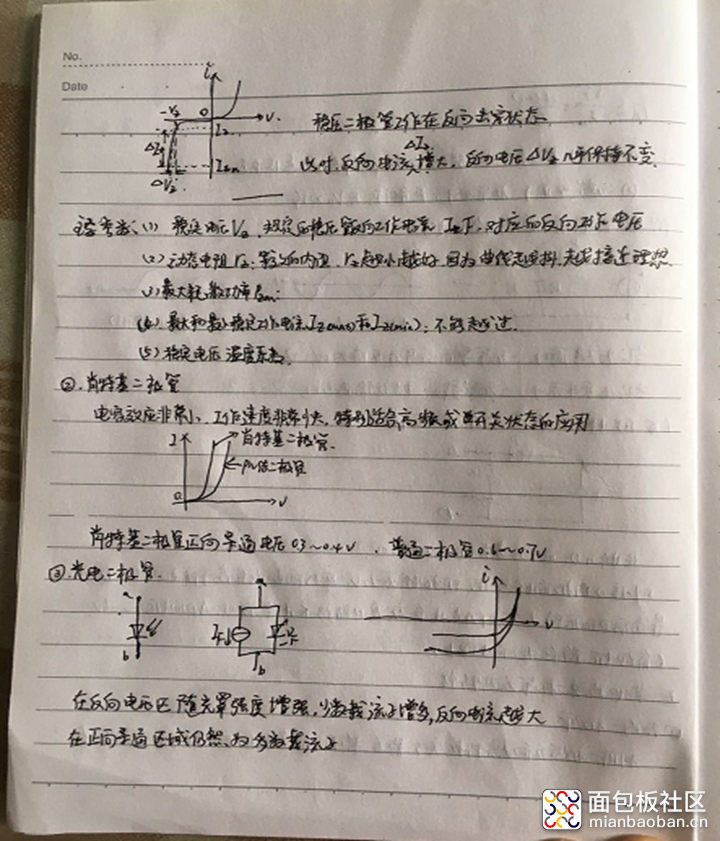 No.
Date
i
-Vz 0 V
Iz
ΔIz
Izm
ΔVz
稳压二极管工作在反向击穿状态
ΔIz
此时,反向电流增大,反向电压ΔVz几乎保持不变.
主要参数:(1) 稳定电压Vz. 规定的稳压管反向工作电流 Iz下,对应的反向工作电压
(2) 动态电阻rz: 等效的内阻. rz越小越好,因为曲线越陡,越接近理想.
(3) 最大耗散功率Pzm:
(4) 最大和最小稳定工作电流Iz(max)和Iz(min): 不能超过.
(5) 稳定电压温度系数.
②.肖特基二极管
电容效应非常小、工作速度非常快,特别适合高频或开关状态的应用
I
肖特基二极管.
PN结二极管
0 V
肖特基二极管正向导通电压0.3~0.4V . 普通二极管0.6~0.7V
③.光电二极管.
a a i
V
b b
在反向电压区 随光照强度增强,少数载流子增多,反向电流越大
在正向导通区域仍然为多数载流子
面包板社区
mianbaoban.cn